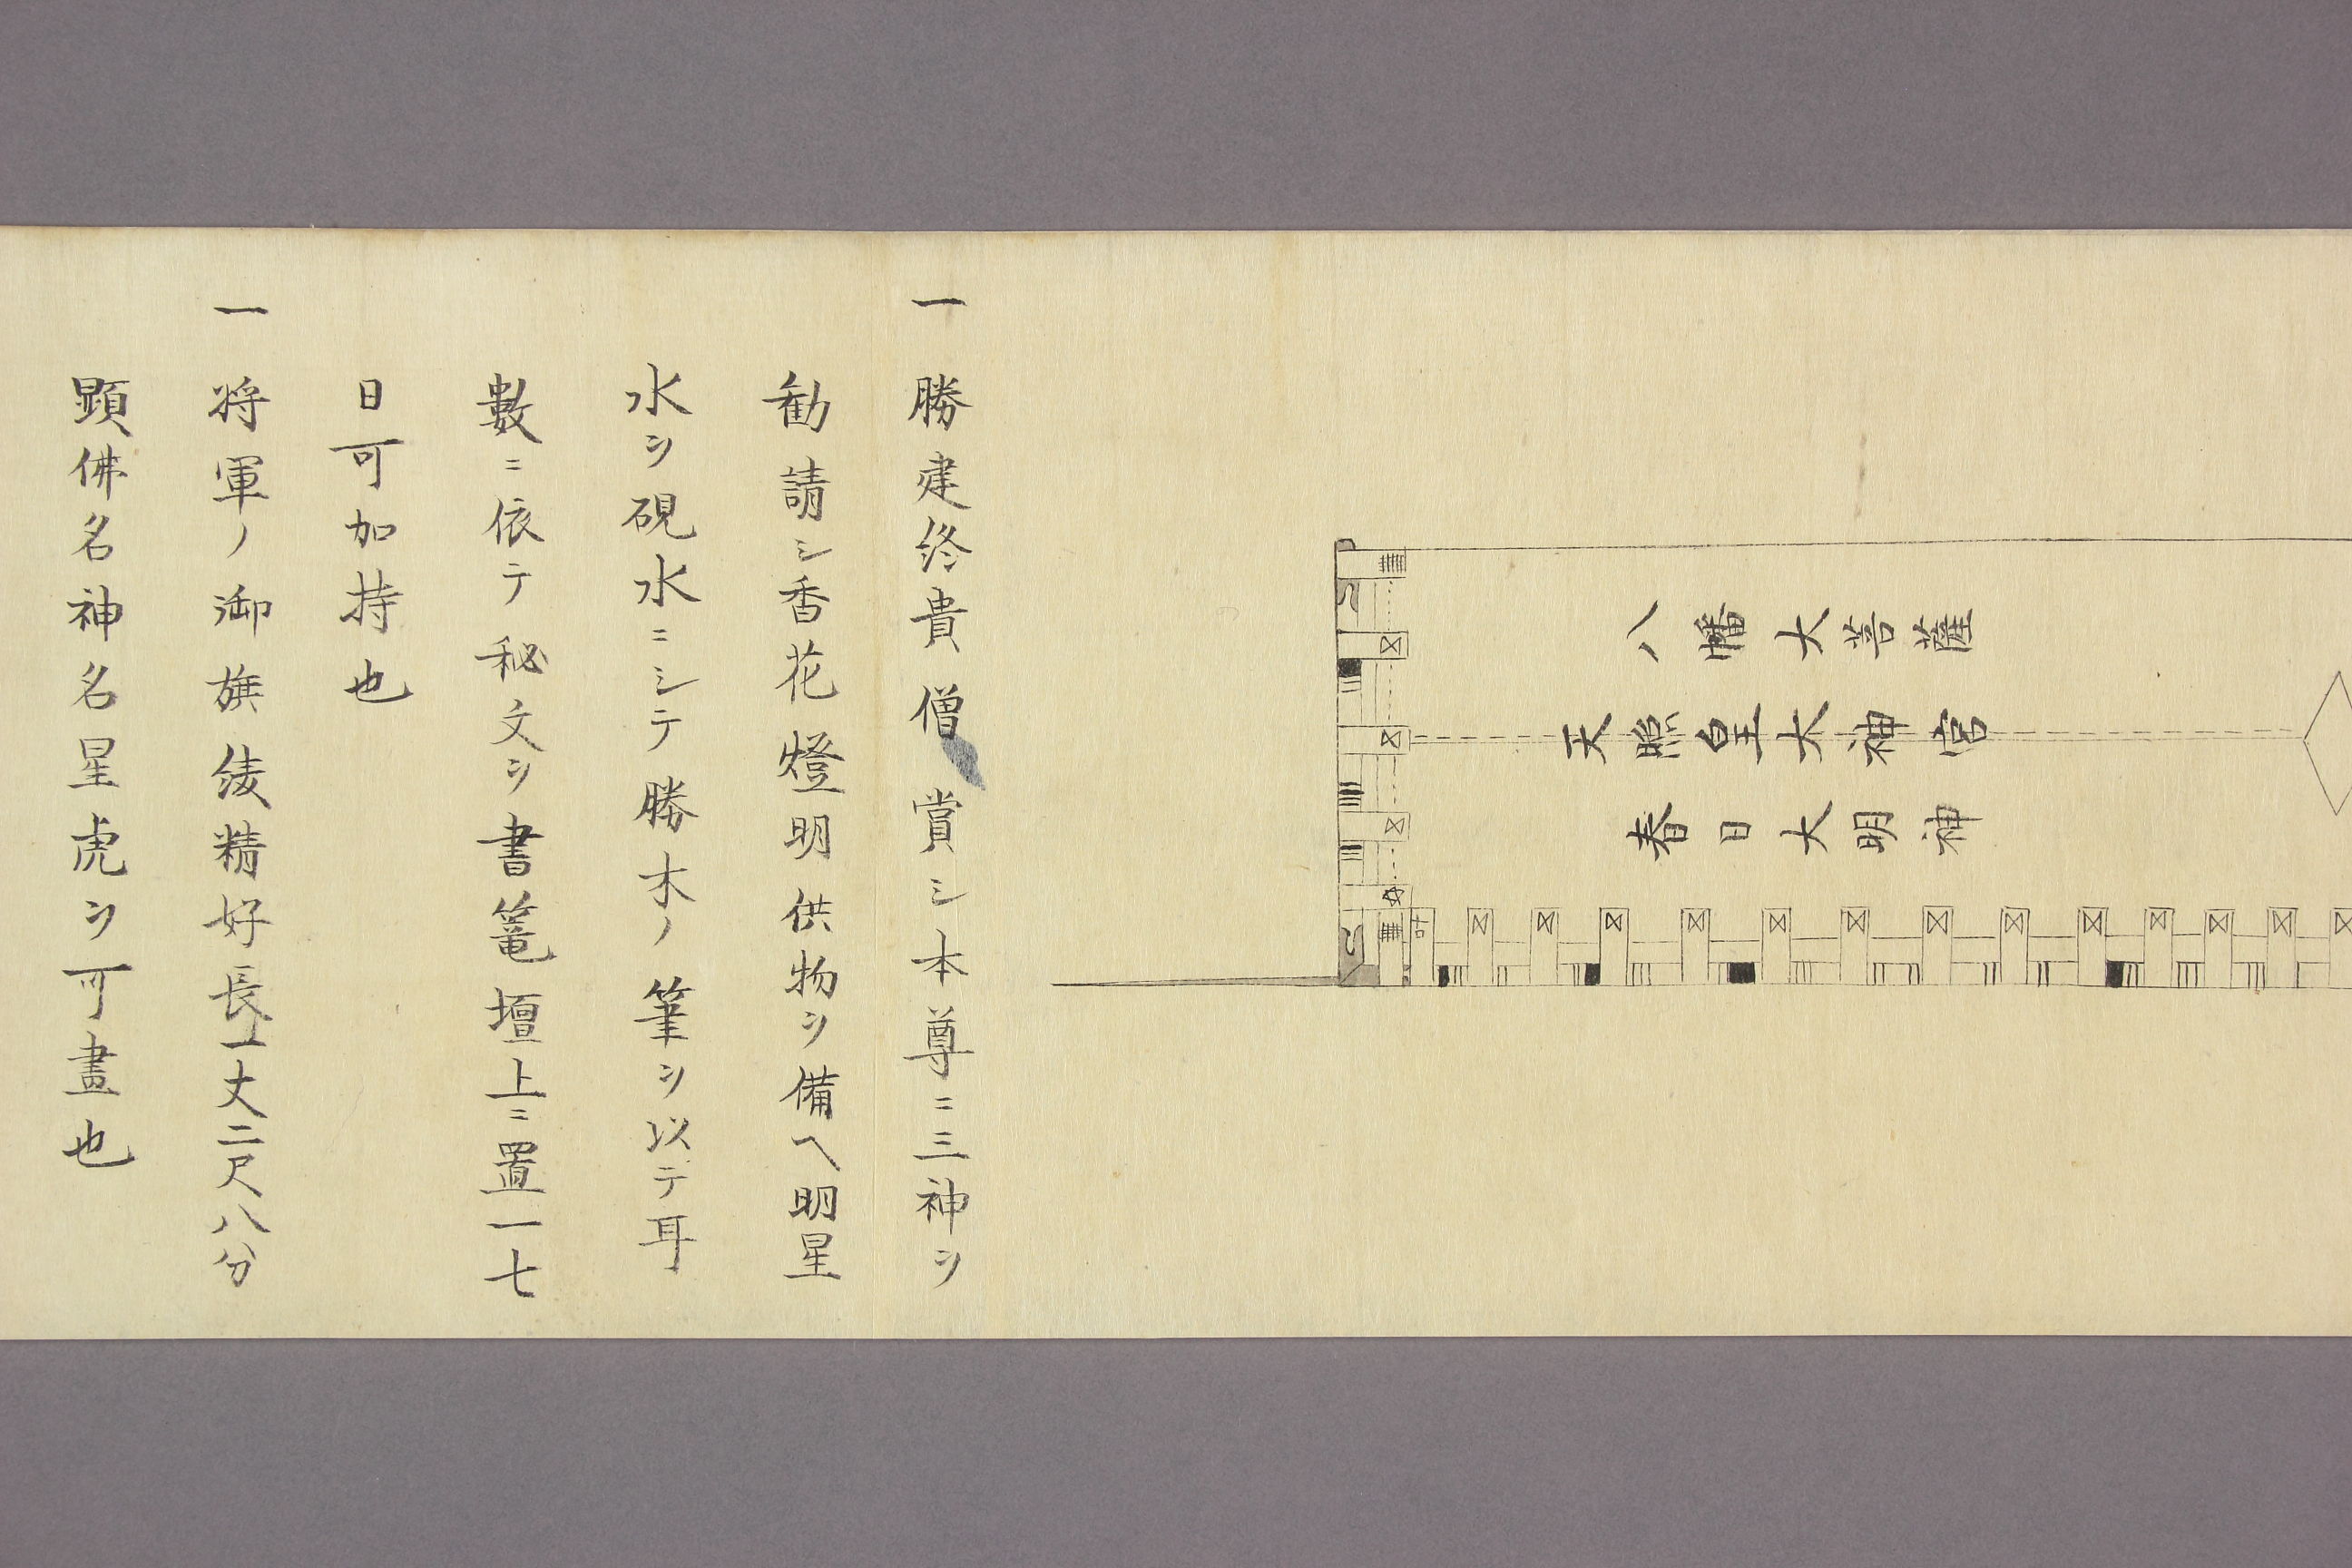 八幡大菩薩
天照皇太神宮
春日大明神
一 勝建終貴僧賞シ本尊ニ三神ヲ
勧請シ香花燈明供物ヲ備ヘ明星
水ヲ硯水ニシテ勝木ノ筆ヲ以テ耳
數ニ依テ秘文ヲ書篭壇上ニ置一七
日可加持也
一 将軍ノ御旗綾精好長一丈二尺八分
顕佛名神名星虎ヲ可畫也